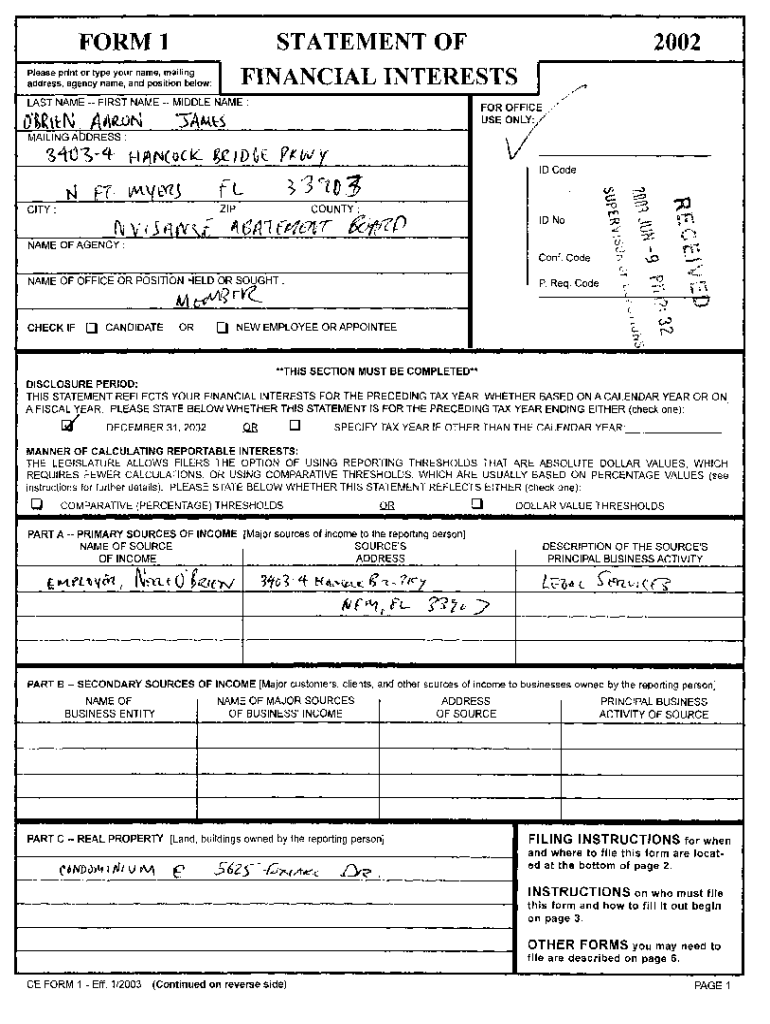 FORM 1 STATEMENT OF 2002
FINANCIAL INTERESTS
Please print or type your name, mailing
address, agency name, and position below:
LAST NAME -- FIRST NAME -- MIDDLE NAME :
O'BRIEN AARON JAMES
MAILING ADDRESS :
3403-4 HANCOCK BRIDGE PKWY
N FT. MYERS FL 33903
CITY : ZIP COUNTY :
NUISANSE ABATEMENT BOARD
NAME OF AGENCY :
NAME OF OFFICE OR POSITION HELD OR SOUGHT :
MEMBER
CHECK IF CANDIDATE OR NEW EMPLOYEE OR APPOINTEE
FOR OFFICE
USE ONLY:
ID Code
ID No
Conf. Code
P. Req. Code
RECEIVED
2003 JUN -9 PM 12:32
SUPERVISOR OF ELECTIONS
**THIS SECTION MUST BE COMPLETED**
DISCLOSURE PERIOD:
THIS STATEMENT REFLECTS YOUR FINANCIAL INTERESTS FOR THE PRECEDING TAX YEAR, WHETHER BASED ON A CALENDAR YEAR OR ON
A FISCAL YEAR. PLEASE STATE BELOW WHETHER THIS STATEMENT IS FOR THE PRECEDING TAX YEAR ENDING EITHER (check one):
DECEMBER 31, 2002 OR SPECIFY TAX YEAR IF OTHER THAN THE CALENDAR YEAR:
MANNER OF CALCULATING REPORTABLE INTERESTS:
THE LEGISLATURE ALLOWS FILERS THE OPTION OF USING REPORTING THRESHOLDS THAT ARE ABSOLUTE DOLLAR VALUES, WHICH
REQUIRES FEWER CALCULATIONS, OR USING COMPARATIVE THRESHOLDS, WHICH ARE USUALLY BASED ON PERCENTAGE VALUES (see
instructions for further details). PLEASE STATE BELOW WHETHER THIS STATEMENT REFLECTS EITHER (check one):
COMPARATIVE (PERCENTAGE) THRESHOLDS OR DOLLAR VALUE THRESHOLDS
PART A -- PRIMARY SOURCES OF INCOME [Major sources of income to the reporting person]
NAME OF SOURCE SOURCE'S DESCRIPTION OF THE SOURCE'S
OF INCOME ADDRESS PRINCIPAL BUSINESS ACTIVITY
EMPLOYER, O'BRIEN 3403-4 LEGAL SERVICES
NFM, FL 33903
PART B -- SECONDARY SOURCES OF INCOME [Major customers, clients, and other sources of income to businesses owned by the reporting person]
NAME OF NAME OF MAJOR SOURCES ADDRESS PRINCIPAL BUSINESS
BUSINESS ENTITY OF BUSINESS' INCOME OF SOURCE ACTIVITY OF SOURCE
PART C -- REAL PROPERTY [Land, buildings owned by the reporting person]
CONDOMINIUM 5625 DR.
FILING INSTRUCTIONS for when
and where to file this form are locat-
ed at the bottom of page 2.
INSTRUCTIONS on who must file
this form and how to fill it out begin
on page 3.
OTHER FORMS you may need to
file are described on page 6.
CE FORM 1 - Eff. 1/2003 (Continued on reverse side) PAGE 1